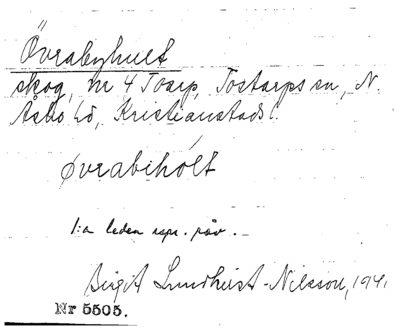 Övrabyhult
skog, nr 4 Toarp, Tostarps sn, N.
Åsbo hd, Kristianstads l.
øvrabihólt
1:a leden
Birgit Lundqvist-Nilsson, 1941
Nr 5505.